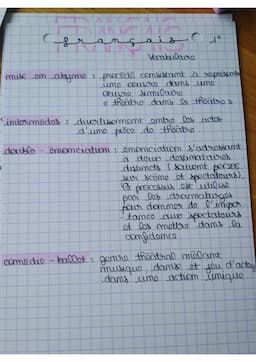 FRANÇAIS
français 1°
Vocabulaire
mise en abyme : procédé consistant à représenter
une oeuvre dans une
oeuvre similaire
" théâtre dans le théâtre "
intermèdes : divertissement entre les actes
d'une pièce de théâtre.
double-énonciation : énonciation s'adressant
à deux destinataires
distincts (
sur scène et spectateurs).
processus est utilisé
par les dramaturges
pour donner de l'impor
tance aux spectateurs
et les mettre dans la
confidence
comédie-ballet : genre théâtral mêlant
musique danse et jeu d'acteur
dans une action unique